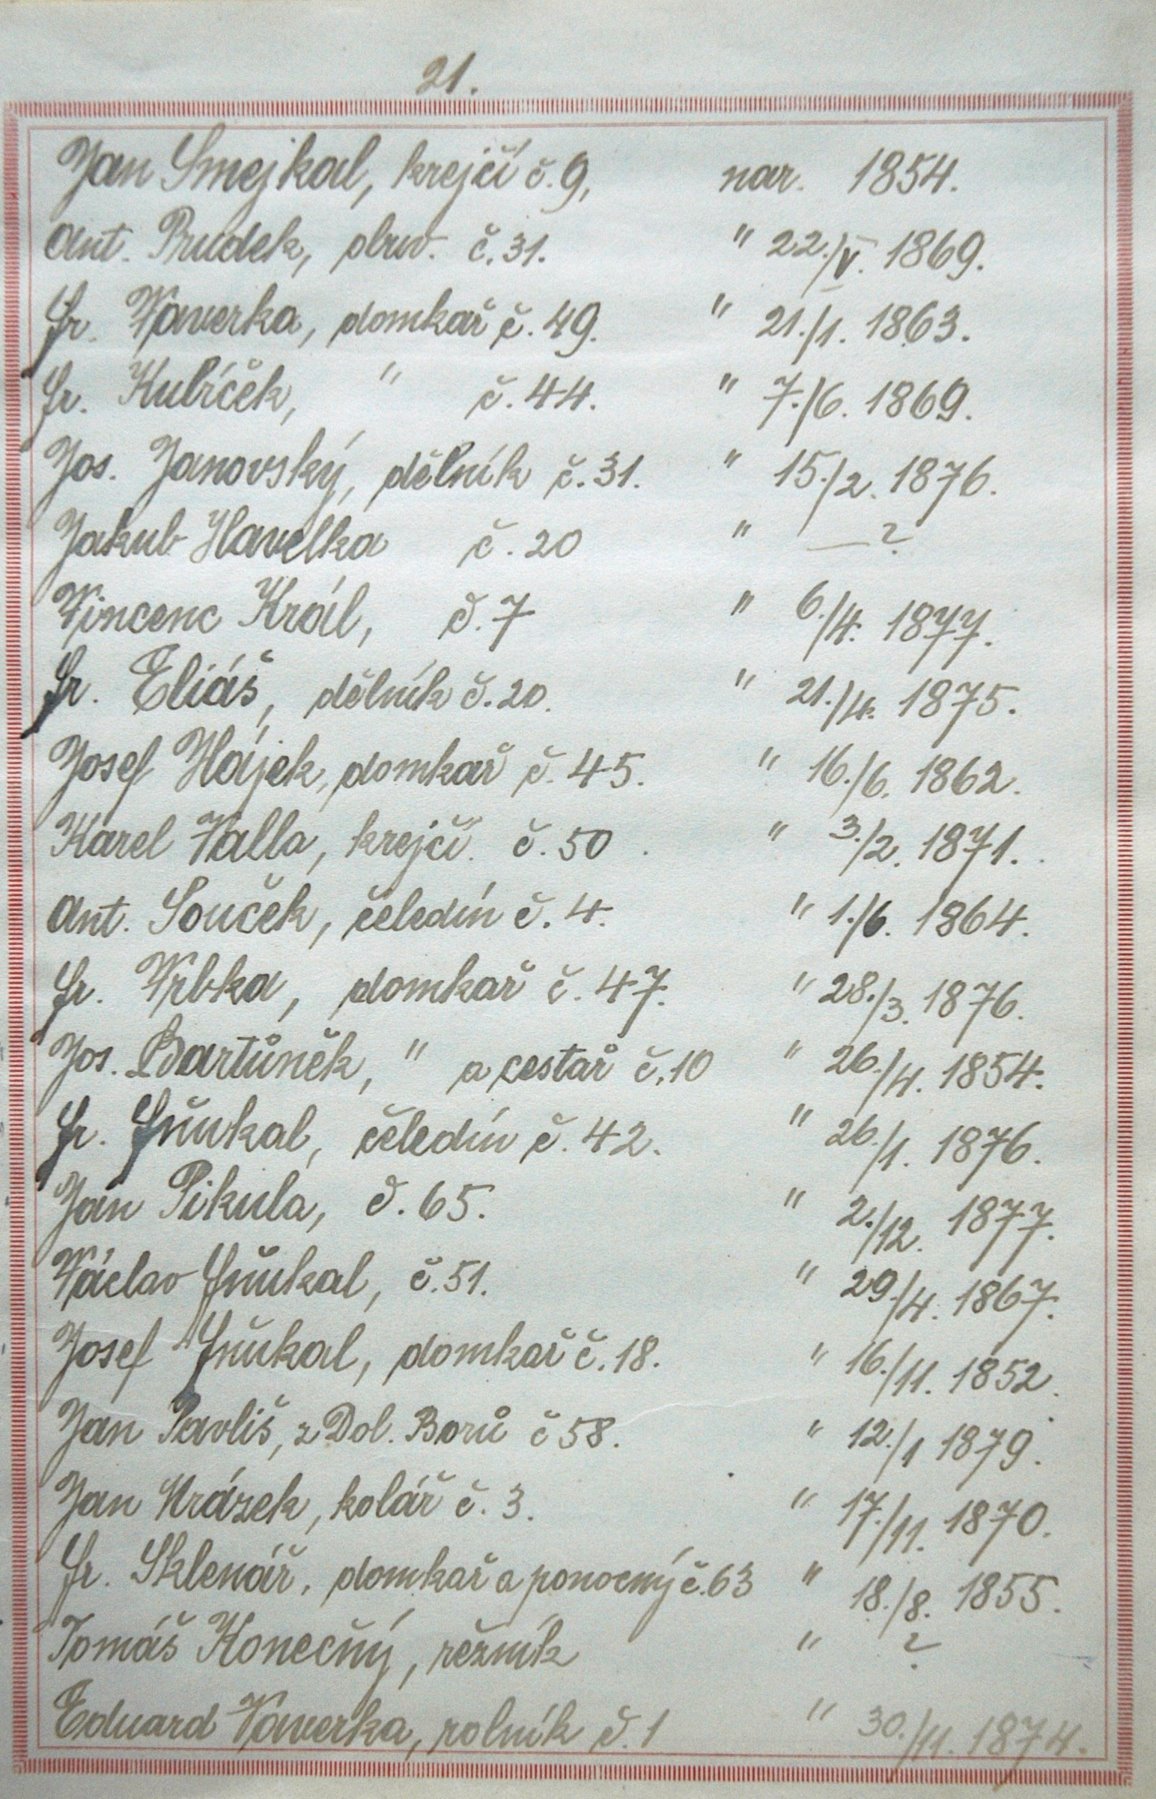 21.
Jan Smejkal, krejčí č.9, nar. 1854.
Ant. Prudek, obuv. č.31. " 22./V. 1869.
Fr. Vaverka, domkař č.49. " 21./1. 1863.
Fr. Kubíček, " č.44. " 7./6. 1869.
Jos. Janovský, dělník č.31. " 15./2. 1876.
Jakub Havelka č.20 " —?
Vincenc Král, č.7 " 6./4. 1877.
Fr. Eliáš, dělník č.20. " 21./4. 1875.
Josef Hájek, domkař č.45. " 16./6. 1862.
Karel Valla, krejčí. č.50 " 3./2. 1871.
Ant. Souček, čeledín č.4. " 1./6. 1864.
Fr. Vrbka, domkař č.47. " 28./3. 1876.
Jos. Bartůněk, " a cestař č.10 " 26./4. 1854.
Fr. Fňukal, čeledín č.42. " 26./1. 1876.
Jan Pikula, č.65. " 2./12. 1877.
Václav Fňukal, č.51. " 29./4. 1867.
Josef Fňukal, domkař č.18. " 16./11. 1852.
Jan Pavliš, z Dol. Borů č 58. " 12./1 1879.
Jan Mrázek, kolář č.3. " 17./11. 1870.
Fr. Sklenář, domkař a ponocný č.63 " 18./8. 1855.
Tomáš Konečný, řezník " ?
Eduard Vaverka, rolník č.1 " 30./11. 1874.